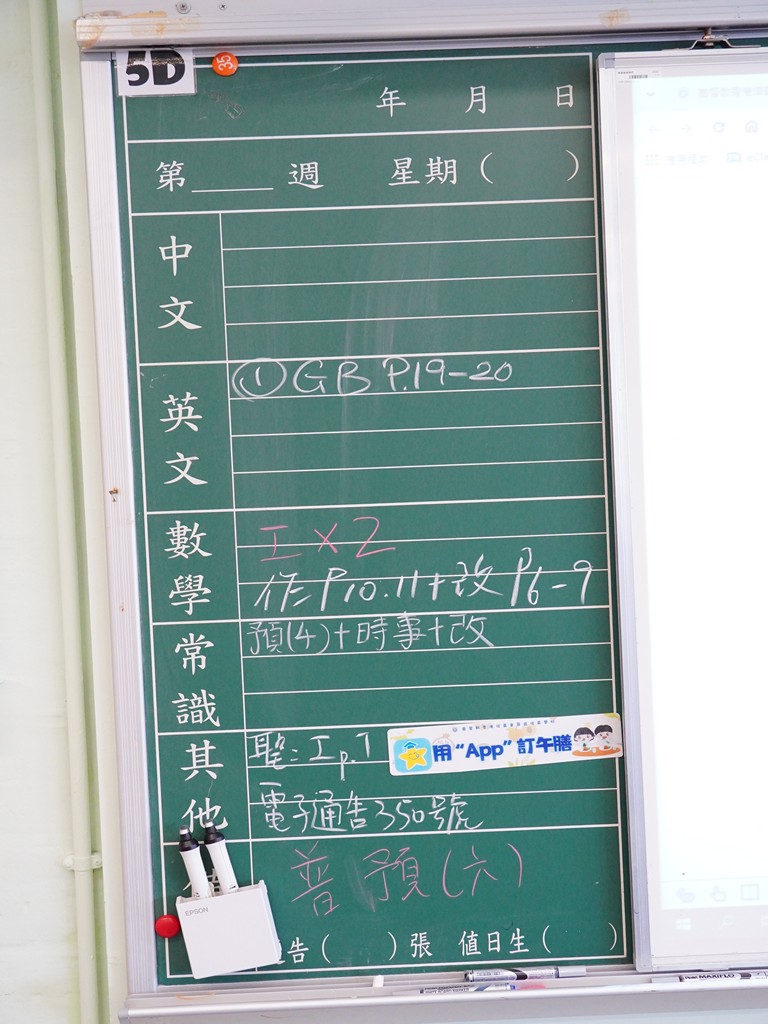 5D
35
年 月 日
第____週 星期( )
中文
英文
① GB P.19-20
數學
工×2
作:P10.11+改P6-9
常識
預(4)+時事+改
其他
聖:工p.7
用“App”訂午膳
電子通告350號
普預(六)
告( )張 值日生( )
EPSON